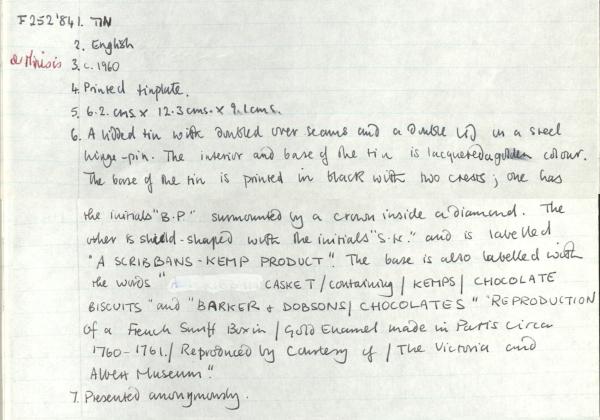 F252'84 1. TIN
2. English
3. c.1960
4. Printed tinplate.
5. 6.2.cms x 12.3cms. x 9.1cms.
6. A lidded tin with doubled over seams and a double lid on a steel
hinge-pin. The interior and base of the tin is lacquered a golden colour.
The base of the tin is printed in black with two crests; one has
the initials "B.P." surmounted by a crown inside a diamond. The
other is shield-shaped with the initials "S.K." and is labelled
"A SCRIBBANS-KEMP PRODUCT". The base is also labelled with
the words " CASKET / containing / KEMPS / CHOCOLATE
BISCUITS" and "BARKER & DOBSONS / CHOCOLATES" "REPRODUCTION
of a French Snuff Box in / Gold Enamel made in Paris Circa
1760-1761. / Reproduced by Courtesy of / The Victoria and
Albert Museum".
7. Presented anonymously.